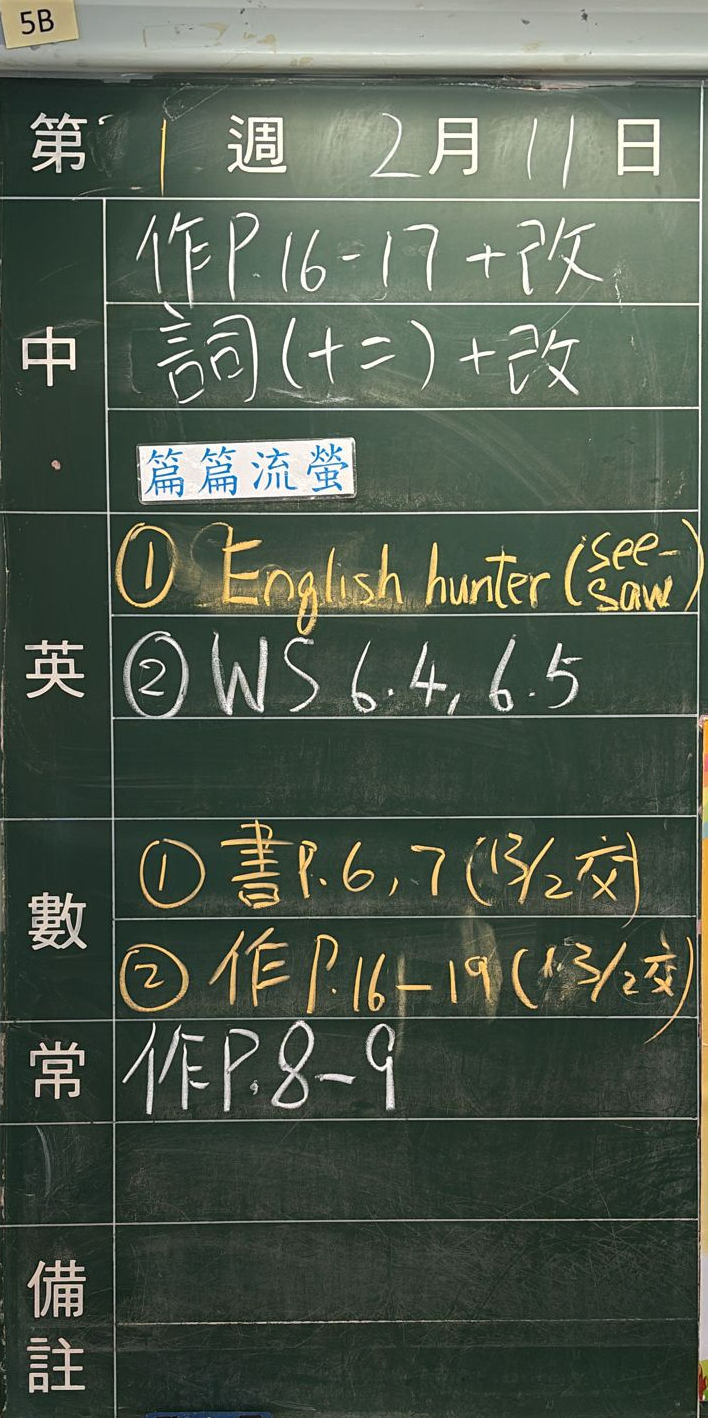 5B
第 1 週 2月11日
中
作P.16-17+改
詞(十二)+改
篇篇流螢
英
① English hunter (see-saw)
② WS 6.4, 6.5
數
① 書P.6,7(13/2交)
② 作P.16-19(13/2交)
常
作P.8-9
備註